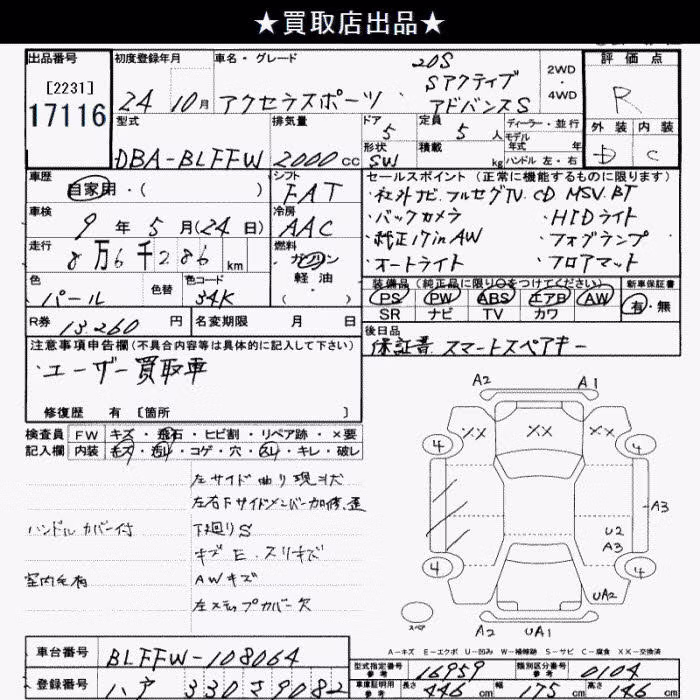 ★買取店出品★
出品番号
[2231]
17116
初度登録年月
24年10月
車名・グレード
20S
アクセラスポーツ
Sアクティブ
アドバンスS
2WD
・
4WD
評価点
R
外装 内装
D C
型式
DBA-BLFFW
排気量
2000cc
ドア
5
定員
5人
形状
SW
積載
kg
ディーラー・並行
モデル
年式 年
ハンドル 左・右
車歴
自家用・( )
シフト
FAT
車検
9年5月(24日)
冷房
AAC
走行
8万6千286km
燃料
ガソリン
軽油
( )
色
パール
色替
色コード
34K
R券
13,260円
名変期限 月 日
セールスポイント(正常に機能するものに限ります)
・社外ナビ フルセグTV CD MSV BT
・バックカメラ ・HIDライト
・純正17inAW ・フォグランプ
・オートライト ・フロアマット
装備品(純正品に限り○をつけてください)
PS PW ABS エアB AW
SR ナビ TV カワ
新車保証書
有・無
後日品
保証書 スマートスペアキー
注意事項申告欄(不具合内容等は具体的に記入して下さい)
・ユーザー買取車
修復歴 有 [箇所 ]
検査員 FW キズ・飛石・ヒビ割・リペア跡・×要
記入欄 内装 キズ・汚れ・コゲ・穴・スレ・キレ・破レ
左サイド曲り現状
左右下サイドメンバー加修、歪
ハンドルカバー付
下廻りS
キズE、スリキズ
室内毛有
AWキズ
左ステップカバー欠
A2 A1
×× ×× ××
4 4
A3
U2
A3
4 4
UA2
スペア
A2 UA1
A-キズ E-エクボ U-凹み W-補修跡 S-サビ C-腐食 ××-交換済
車台番号
BLFFW-108064
登録番号
330さ9082
型式指定番号
参考
16959
類別区分番号
参考
0104
車庫証明用
参考
長さ 446cm 幅 175cm 高さ 146cm